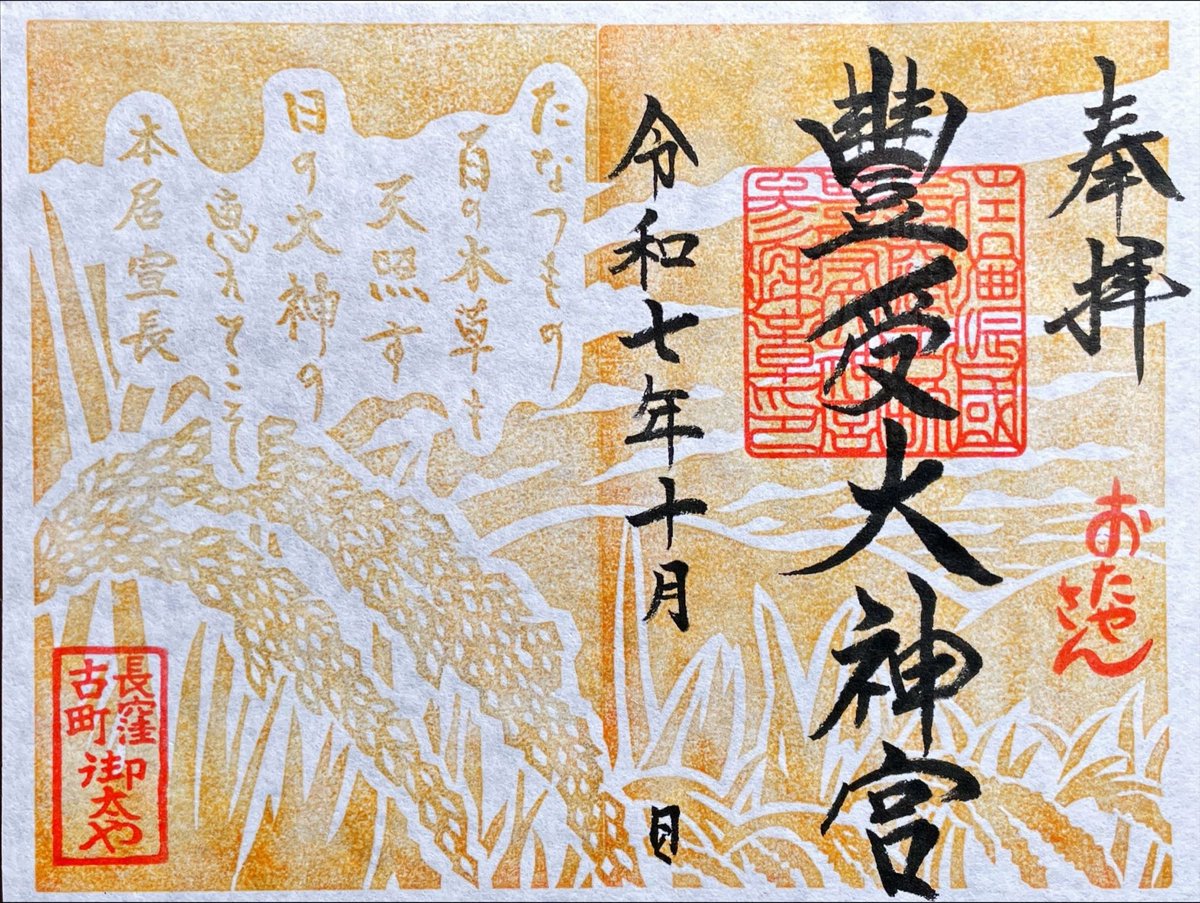 奉拝
豊受大神宮
おたやさん
令和七年十月
日
たなつもの
百の木草も
天照す
日の大神の
恵えてこそ
本居宣長
長窪
古町
御太や